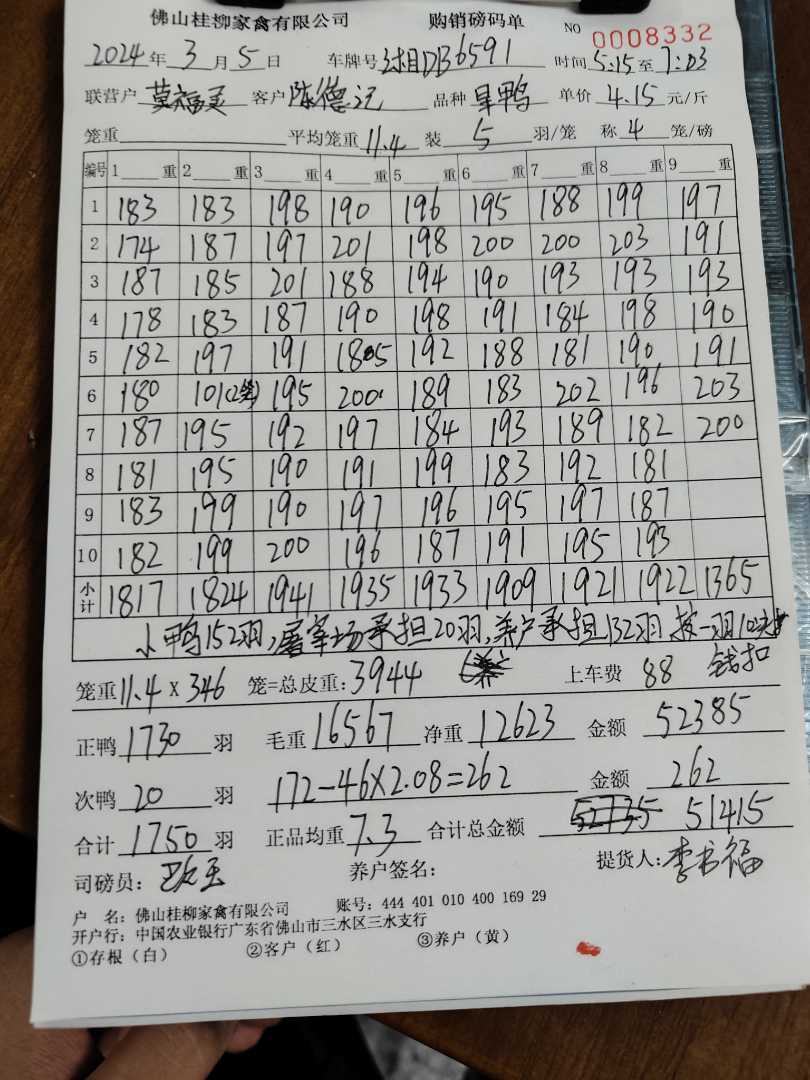 佛山桂柳家禽有限公司 购销磅码单 NO 0008332
2024年3月5日 车牌号 DB6591 时间 5:15至7:03
联营户 莫福灵 客户 陈德记 品种 旱鸭 单价 4.15 元/斤
笼重 平均笼重 11.4 装 5 羽/笼 称 4 笼/磅
编号 1 重 2 重 3 重 4 重 5 重 6 重 7 重 8 重 9 重
1 183 183 198 190 196 195 188 199 197
2 174 187 197 201 198 200 200 203 191
3 187 185 201 188 194 190 193 193 193
4 178 183 187 190 198 191 184 198 190
5 182 197 191 185 192 188 181 190 191
6 180 101(2笼) 195 200 189 183 202 196 203
7 187 195 192 197 184 193 189 182 200
8 181 195 190 191 199 183 192 181
9 183 199 190 197 196 195 197 187
10 182 199 200 196 187 191 195 193
小计 1817 1824 1941 1935 1933 1909 1921 1922 1365
小鸭152羽,屠宰场承担20羽,养户承担132羽 按一羽10块
钱扣
笼重 11.4 x 346 笼=总皮重: 3944 上车费 88
正鸭 1730 羽 毛重 16567 净重 12623 金额 52385
次鸭 20 羽 172-46×2.08=262 金额 262
合计 1750 羽 正品均重 7.3 合计总金额 52735 51415
司磅员: 养户签名: 提货人: 李书福
户 名: 佛山桂柳家禽有限公司 账号: 444 401 010 400 169 29
开户行: 中国农业银行广东省佛山市三水区三水支行
①存根（白） ②客户（红） ③养户（黄）